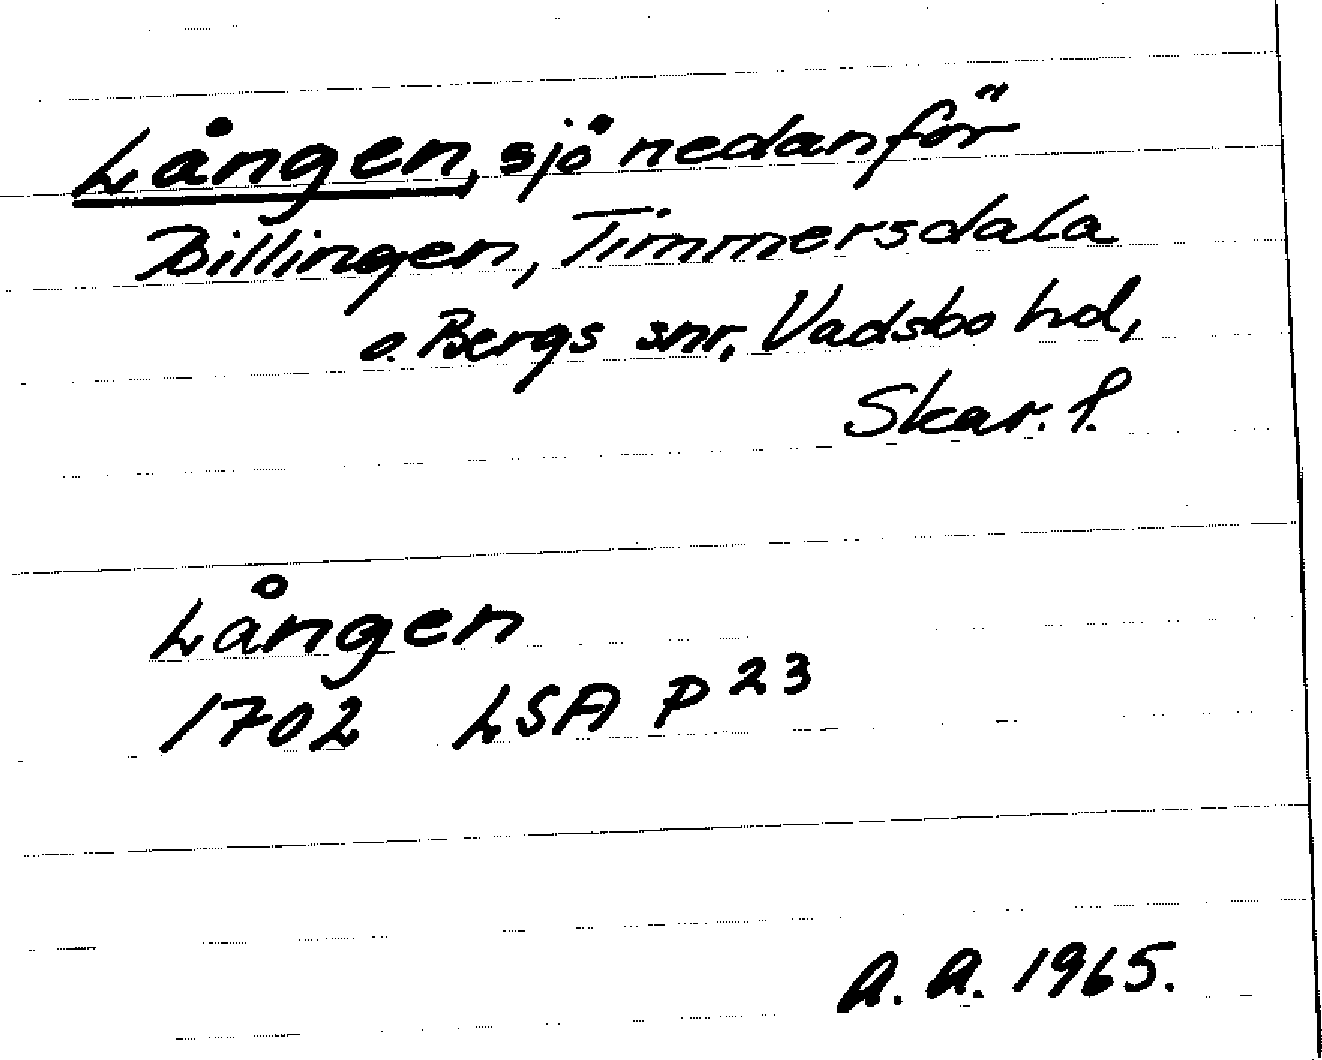 Lången, sjö nedanför
Billingen, Timmersdala
o. Bergs snr, Vadsbo hd,
Skar. l.
Lången
1702 LSA P 23
A. A. 1965.